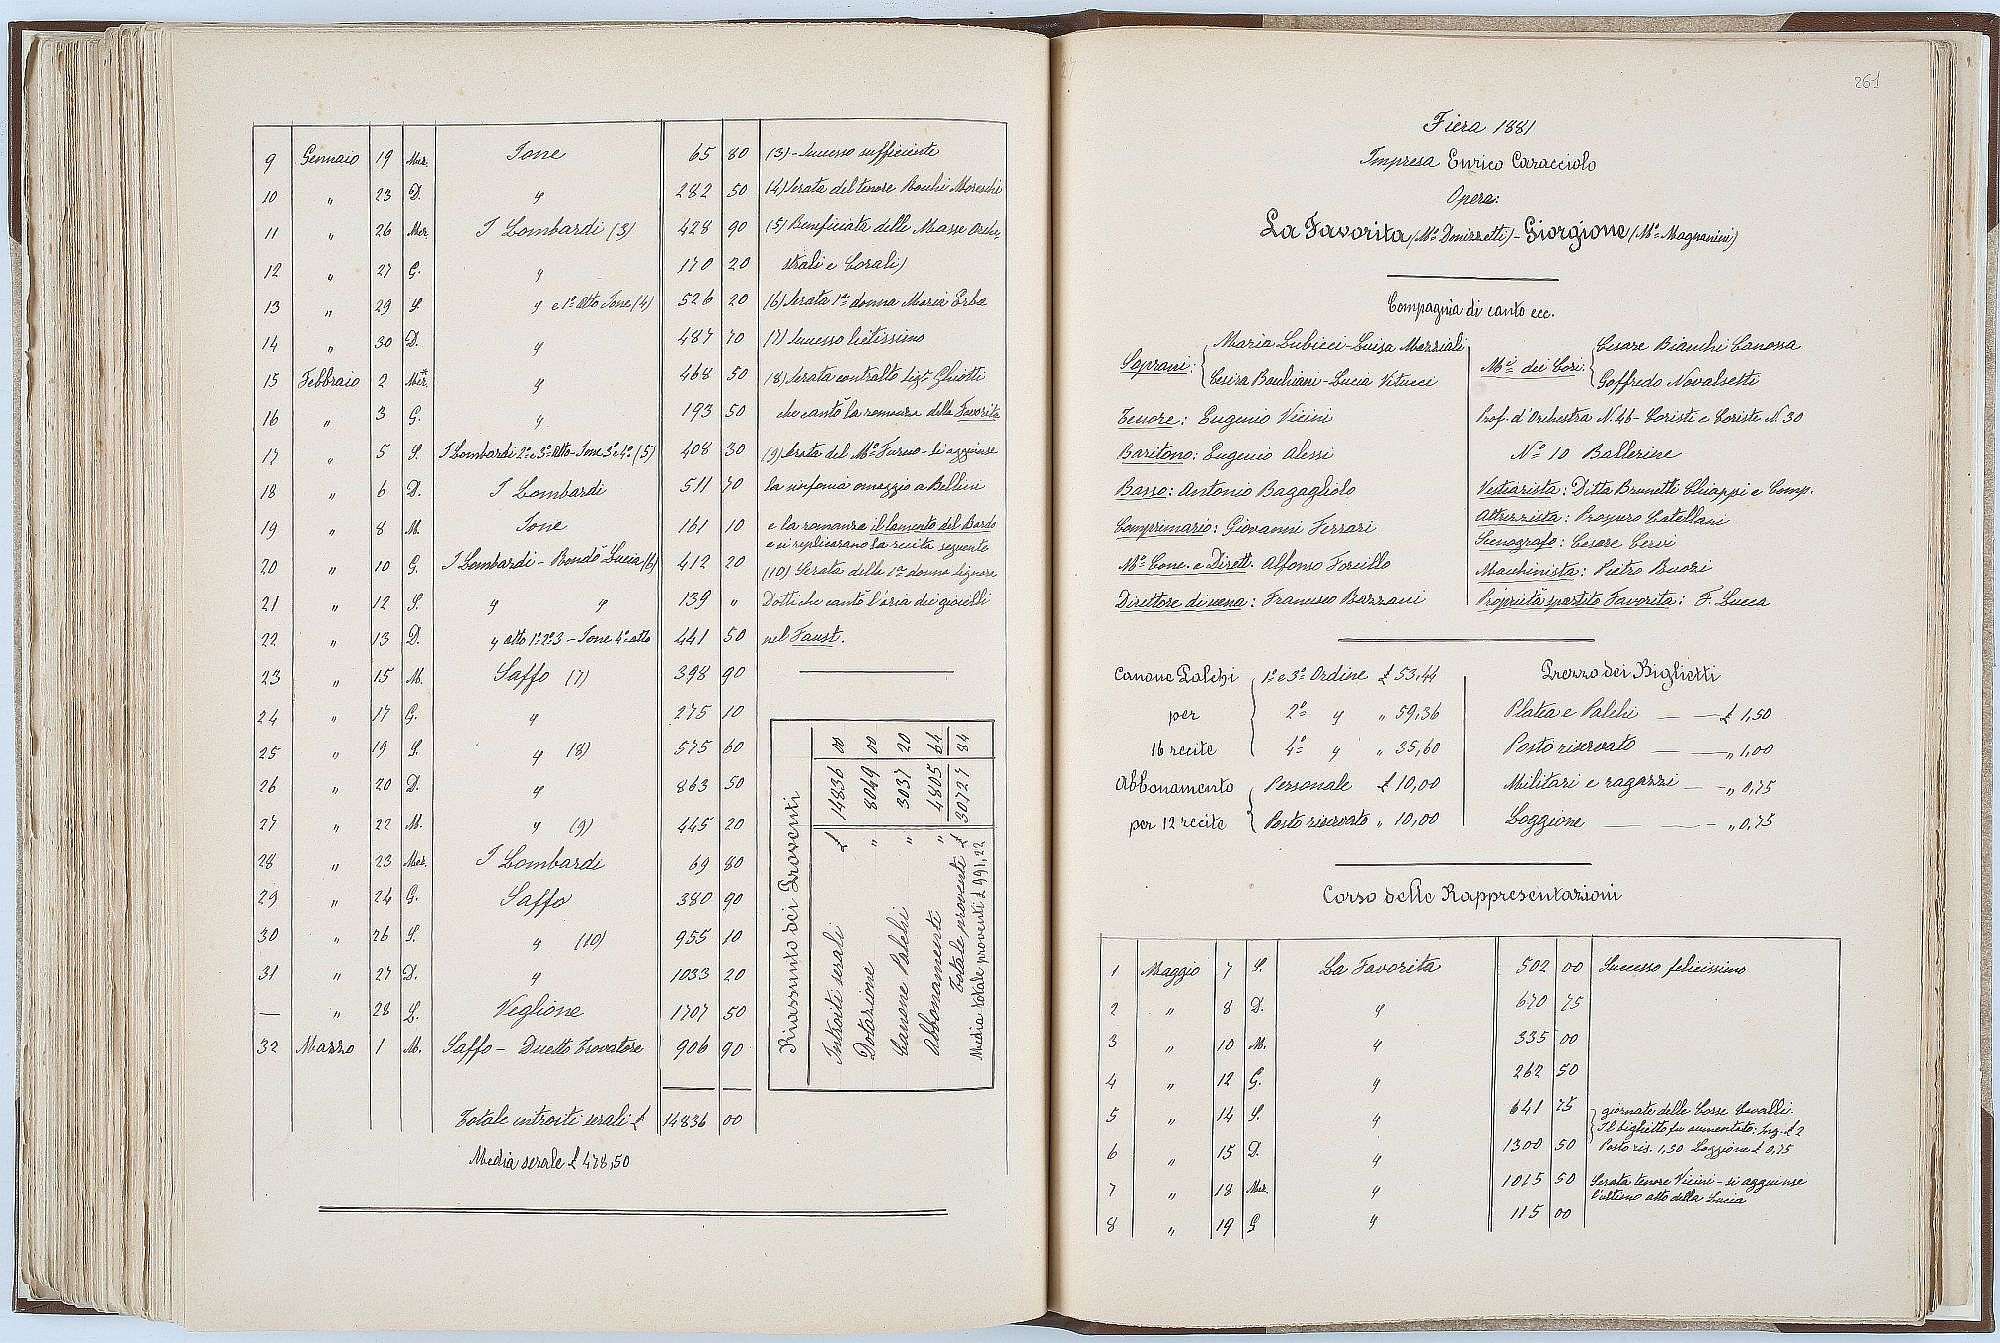 9 Gennaio 19 Mer. Jone 65 80 (3) - Successo sufficiente
10 " 23 D. " 282 50 (4) Serata del tenore Moreschi
11 " 26 Mer. I Lombardi (3) 428 90 (5) Beneficiata delle Masse Orche-
12 " 27 G. " 170 20 strali e Corali)
13 " 29 S. " e 1º atto Jone (4) 526 20 (6) Serata 1ª donna Maria Erba
14 " 30 D. " 487 70 (7) Successo lietissimo
15 Febbraio 2 Mer.* " 468 50 (8) Serata contralto Sigª Ghiotti
16 " 3 G. " 193 50 che cantò la romanza della Favorita
17 " 5 S. I Lombardi 2º e 3º atto - Jone 3º e 4º (5) 408 30 (9) Serata del Mº - Si aggiunse
18 " 6 D. I Lombardi 511 70 la sinfonia omaggio a Bellini
19 " 8 M. Jone 161 10 e la romanza il lamento del Bardo
e si replicarano la recita seguente
20 " 10 G. I Lombardi - Rondò Lucia (6) 412 20 (10) Serata della 1ª donna Signora
21 " 12 S. " " 139 " Dotti che cantò l'aria dei gioielli
22 " 13 D. " atto 1º 2º 3 - Jone 4º atto 441 50 nel Faust.
23 " 15 M. Saffo (7) 398 90
24 " 17 G. " 275 10
25 " 19 S. " (8) 575 60
26 " 20 D. " 863 50
27 " 22 M. " (9) 445 20
28 " 23 Mer. I Lombardi 69 80
29 " 24 G. Saffo 380 90
30 " 26 S. " (10) 955 10
31 " 27 D. " 1033 20
— " 28 L. Veglione 1707 50
32 Marzo 1 M. Saffo - Duetto Trovatore 906 90
Totale introiti serali £ 14836 00
Media serale £ 478,50
Riassunto dei Proventi
Introiti serali £ 14836 00
Dotazione " 8049 00
Canone Palchi " 3037 20
Abbonamenti " 4805 64
Totale proventi £ 30727 84
Media totale proventi £ 991,22
261
Fiera 1881
Impresa Enrico Caracciolo
Opera:
La Favorita (Mº Donizzetti) - Giorgione (Mº - Magnanini)
Compagnia di canto ecc.
Soprani: Maria Lubicci - Luisa Marziali
Cesira Bachiani - Lucia Vitucci
Tenore: Eugenio Vicini
Baritono: Eugenio Alessi
Basso: Antonio Bagagliolo
Comprimario: Giovanni Ferrari
Mº Conc. e Dirett. Alfonso
Direttore di scena: Francesco Bazzani
Mⁱ dei Cori: Cesare Bianchi Canossa
Goffredo Novalsetti
Prof. d'Orchestra N. 46 - Coristi e Coriste N. 30
Nº 10 Ballerine
Vestiarista: Ditta Brunetti Chiappi e Comp.
Attrezzista: Prospero Catellani
Scenografo: Cesare Cervi
Macchinista: Pietro Buozi
Proprietà spartito Favorita: F. Lucca
Canone Palchi 1º e 3º Ordine £ 53,44
per 2º " " 59,36
16 recite 4º " " 35,60
Abbonamento Personale £ 10,00
per 12 recite Posto riservato " 10,00
Prezzo dei Biglietti
Platea e Palchi — — £ 1,50
Posto riservato — — " 1,00
Militari e ragazzi — " 0,75
Loggione — — " 0,75
Corso delle Rappresentazioni
1 Maggio 7 S. La Favorita 502 00 Successo felicissimo
2 " 8 D. " 670 75
3 " 10 M. " 335 00
4 " 12 G. " 262 50
5 " 14 S. " 641 75 giornate delle Corse Cavalli.
Il biglietto fu aumentato: Ing. £ 2
6 " 15 D. " 1300 50 Posto ris. 1,50 Loggione £ 0,75
7 " 18 Mer. " 1015 50 Serata tenore Vicini - si aggiunse
l'ultimo atto della Lucia
8 " 19 G " 115 00